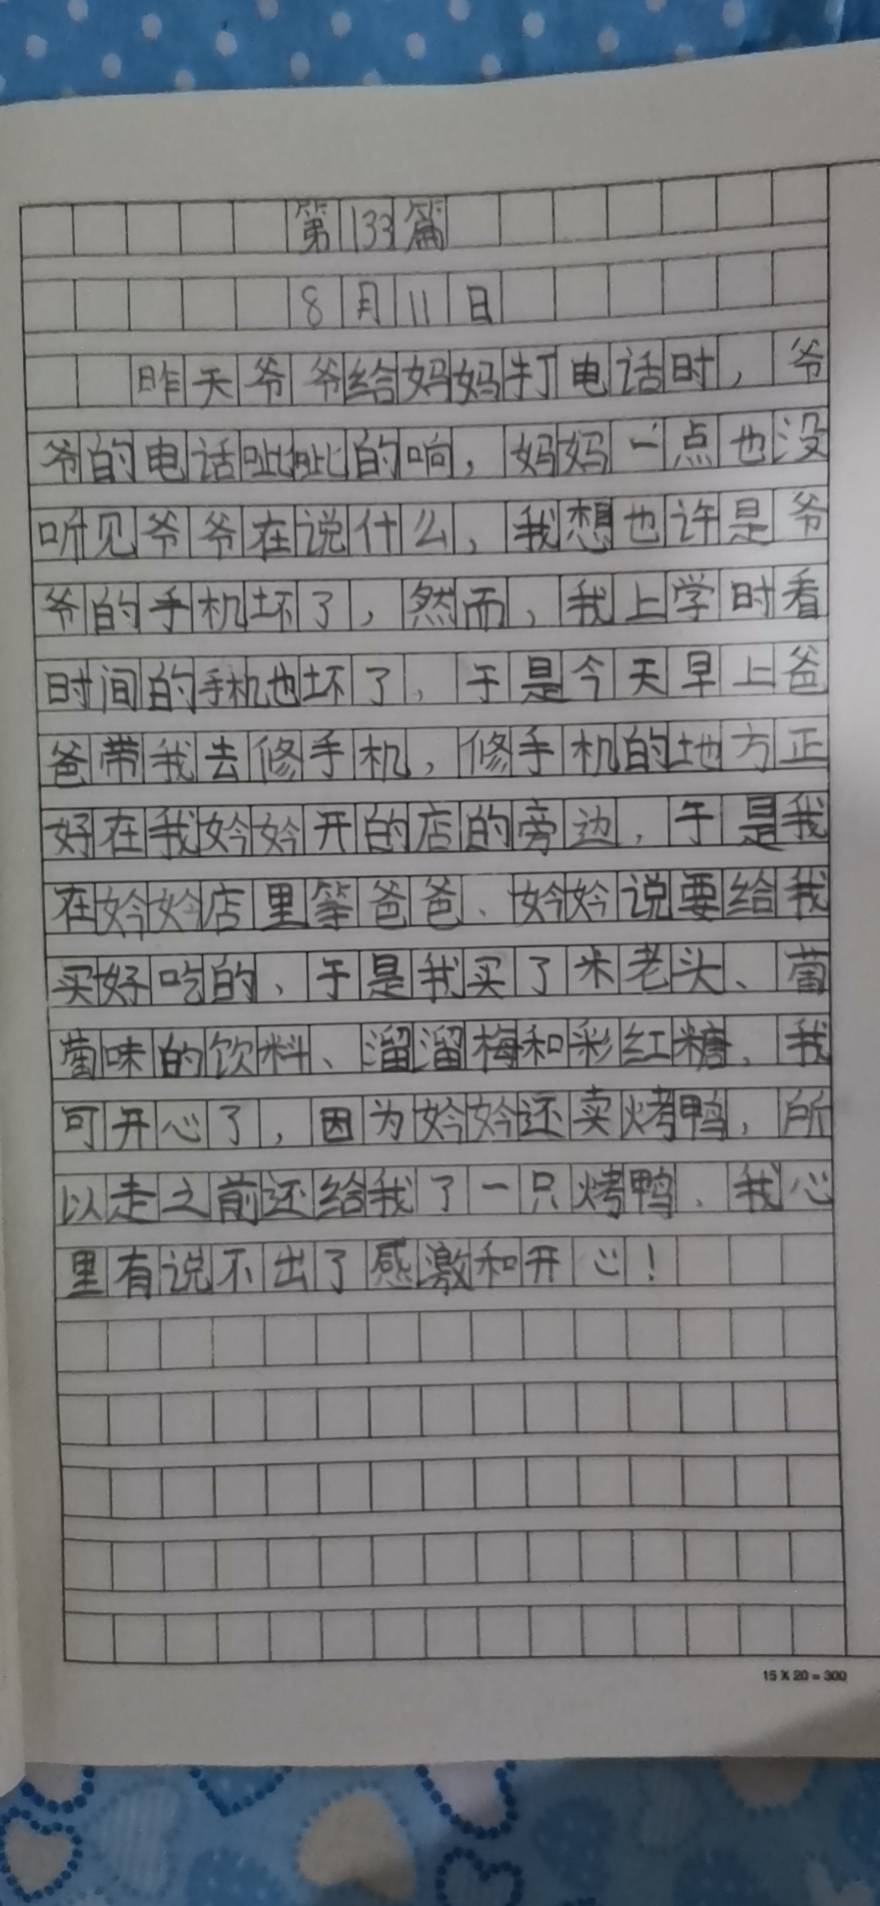 第133篇
8月11日
昨天爷爷给妈妈打电话时，爷
爷的电话呲呲的响，妈妈一点也没
听见爷爷在说什么，我想也许是爷
爷的手机坏了，然而，我上学时看
时间的手机也坏了，于是今天早上爸
爸带我去修手机，修手机的地方正
好在我妗妗开的店的旁边，于是我
在妗妗店里等爸爸、妗妗说要给我
买好吃的、于是我买了米老头、葡
萄味的饮料、溜溜梅和彩红糖、我
可开心了，因为妗妗还卖烤鸭，所
以走之前还给我了一只烤鸭、我心
里有说不出了感激和开心！
15 X 20 = 300